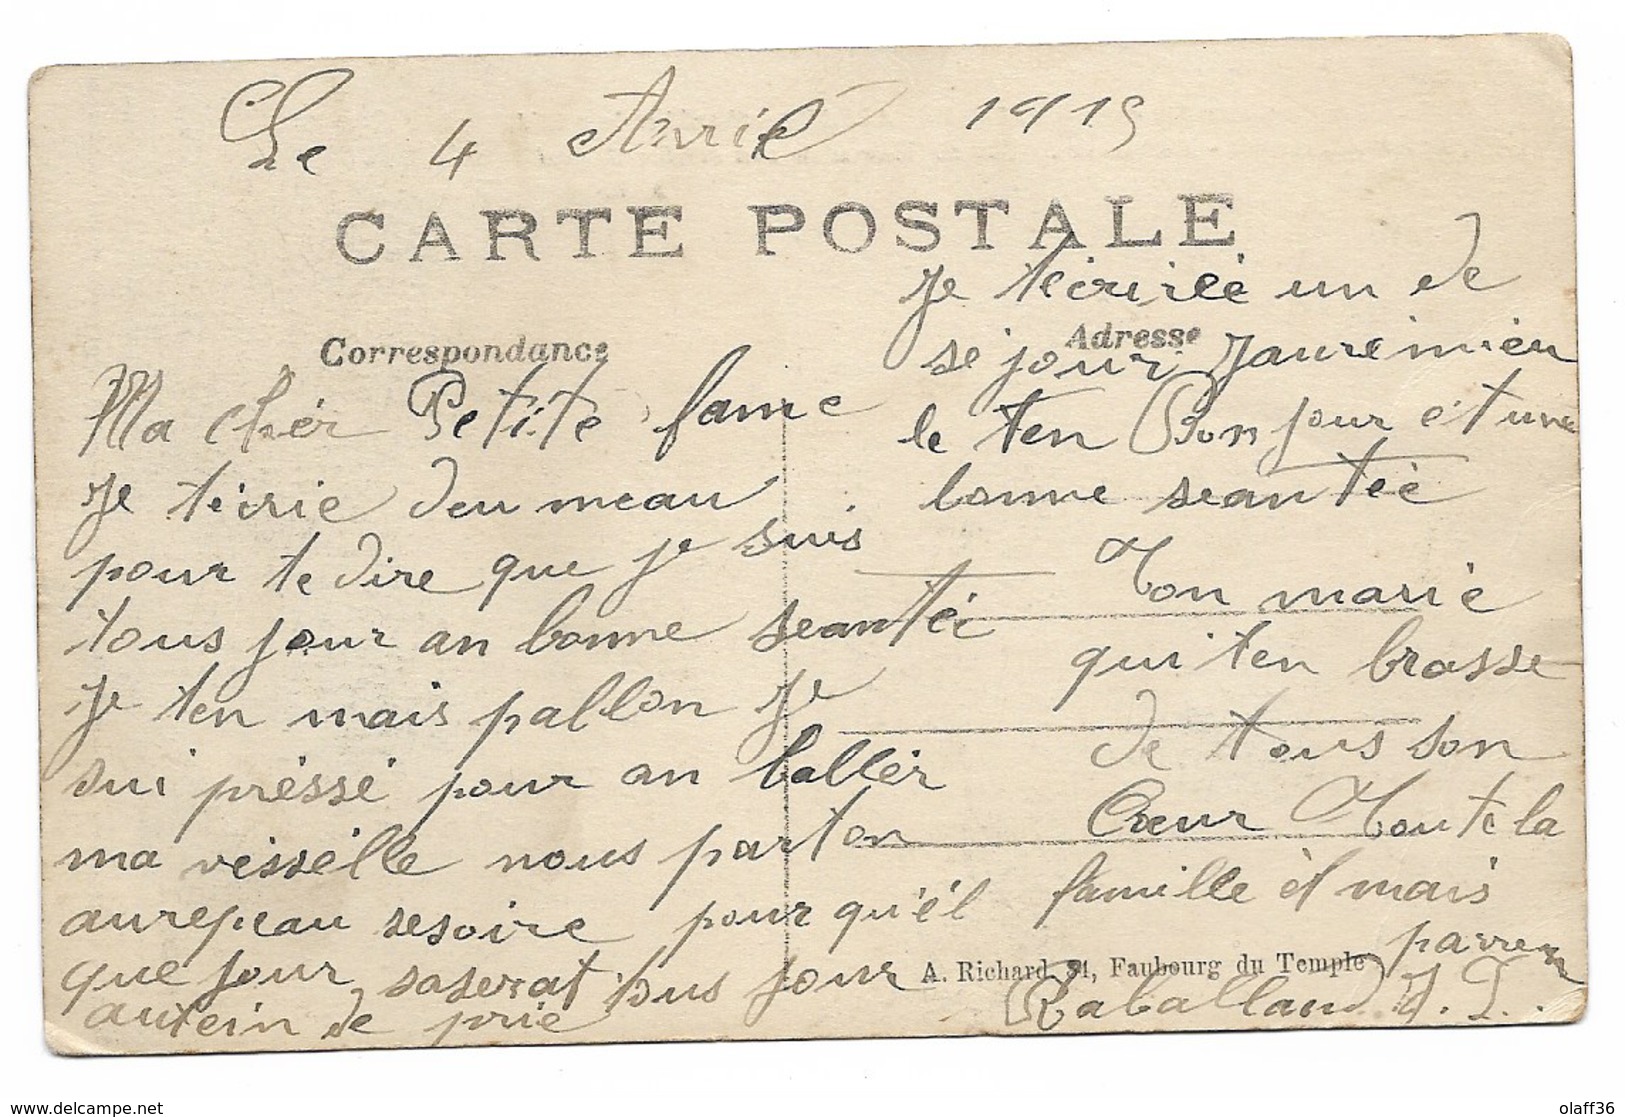 Le 4 Avril 1915
CARTE POSTALE
Correspondance
Ma chér Petite fame
Je técrie deu meau
pour te dire que je suis
tous jour an bonne seantéé
Je ten mais pallon Je
sui préssé pour an baller
ma vésselle nous parton
aurepeau sesoire pour qu'él
que jour saserat tous jour
autein de prie
Adresse
Je técrirée un de
se jour Jauremieu
le ten Bon jour et une
bonne seantéé
Ton marie
qui ten brasse
de tous son
Cœur Toute la
famille et mais
parren
A. Richard, 84, Faubourg du Temple
Raballand J. L.
olaff36